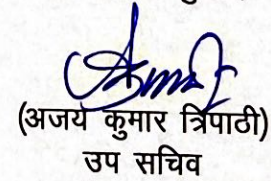 (अजय कुमार त्रिपाठी)
उप सचिव